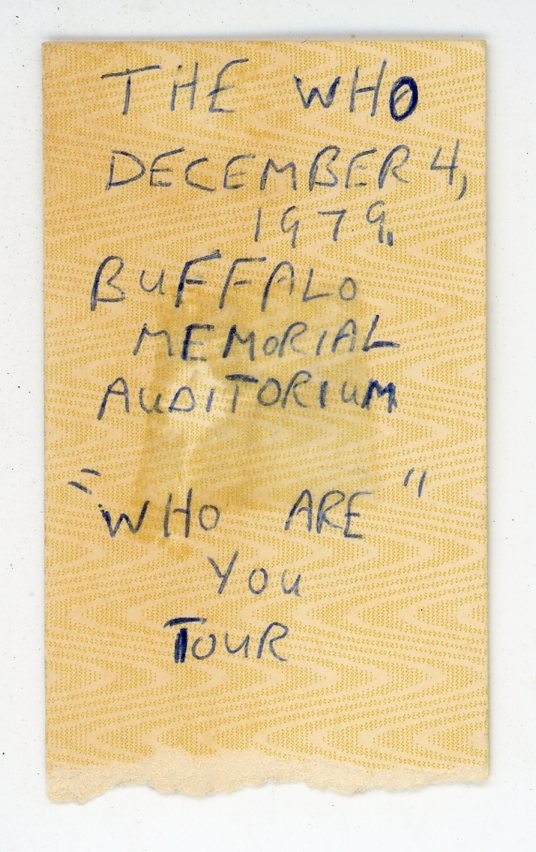 THE WHO
DECEMBER 4,
1979.
BUFFALO
MEMORIAL
AUDITORIUM
"WHO ARE"
YOU
TOUR